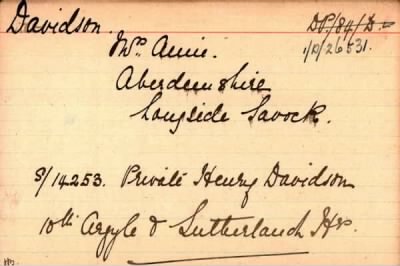 Davidson. DP/84/D.
1/D/26531.
Mrs. Annie.
Aberdeenshire
Longside Savock.
S/14253. Private Henry Davidson
10th Argyle & Sutherland Hrs.